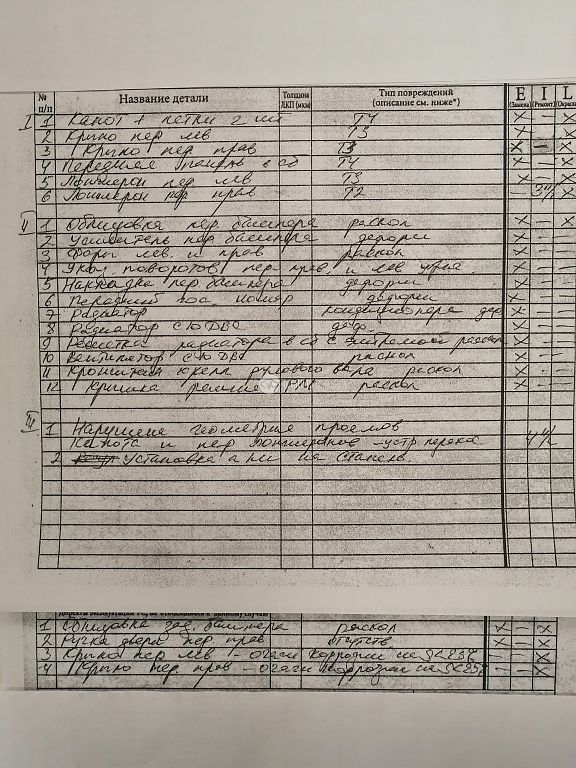 № п/п Название детали Толщина ЛКП (мкм) Тип повреждений (описание см. ниже*) E (Замена) I (Ремонт) L (Окраска
I 1 Капот + петли 2 шт Т4 X — X
2 Крыло пер лев Т3 X — X
3 Крыло пер прав Т3 X — X
4 Передняя панель в сб Т4 X — X
5 Лонжерон пер лев Т3 X — X
6 Лонжерон пер прав Т2 3 ч X
II 1 Облицовка пер. бампера раскол X — X
2 Усилитель пер бампера деформ X —
3 Фары лев. и прав раскол X — —
4 Указ. поворотов пер прав. и лев X — —
5 Накладка пер. бампера деформ X — —
6 Передний гос. номер деформ X —
7 Радиатор кондиционера деф X — —
8 Радиатор с/о ДВС деф. X — —
9 Решетка радиатора в сб с раскол X — —
10 Вентилятор с/о ДВС раскол X — —
11 Кронштейн раскол X — —
12 Крышка раскол X — —
III 1 Нарушение геометрии проемов
капота и пер лонжеронов - устр перекоса 4 ч
2 Установка а/м на стапель.
1 Облицовка зад. бампера раскол X — X
2 Ручка двери пер. прав отсутств X — X
3 Крыло пер лев - очаги коррозии на X
4 Крыло пер. прав - очаги коррозии на X